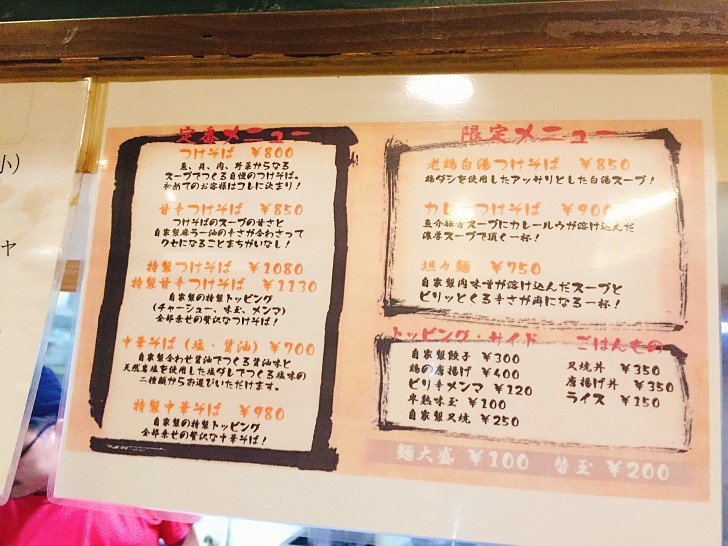 小）
ヤ
定番メニュー
つけそば ￥800
魚、貝、肉、野菜からなる
スープでつくる自慢のつけそば。
初めてのお客様はコレに決まり！
甘辛つけそば ￥850
つけそばのスープの甘さと
自家製麻ラー油の辛さが合わさって
クセになることまちがいなし！
特製つけそば ￥1080
特製甘辛つけそば ￥1130
自家製の特製トッピング
（チャーシュー、味玉、メンマ）
全部乗せの贅沢なつけそば！
中華そば（塩・醤油）￥700
自家製合わせ醤油でつくる醤油味と
天然岩塩を使用した塩ダレでつくる塩味の
二種類からお選びいただけます。
特製中華そば ￥980
自家製の特製トッピング
全部乗せの贅沢な中華そば！
限定メニュー
老鶏白湯つけそば ￥850
鶏ダシを使用したアッサリとした白湯スープ！
カレーつけそば ￥900
魚介豚骨スープにカレールウが溶け込んだ
濃厚スープで頂く一杯！
坦々麺 ￥750
自家製肉味噌が溶け込んだスープと
ピリッとくる辛さが病になる一杯！
トッピング・サイド
自家製餃子 ￥300
鶏の唐揚げ ￥400
ピリ辛メンマ ￥120
半熟味玉 ￥100
自家製叉焼 ￥250
ごはんもの
叉焼丼 ￥350
唐揚げ丼 ￥350
ライス ￥150
麺大盛 ￥100 替玉 ￥200